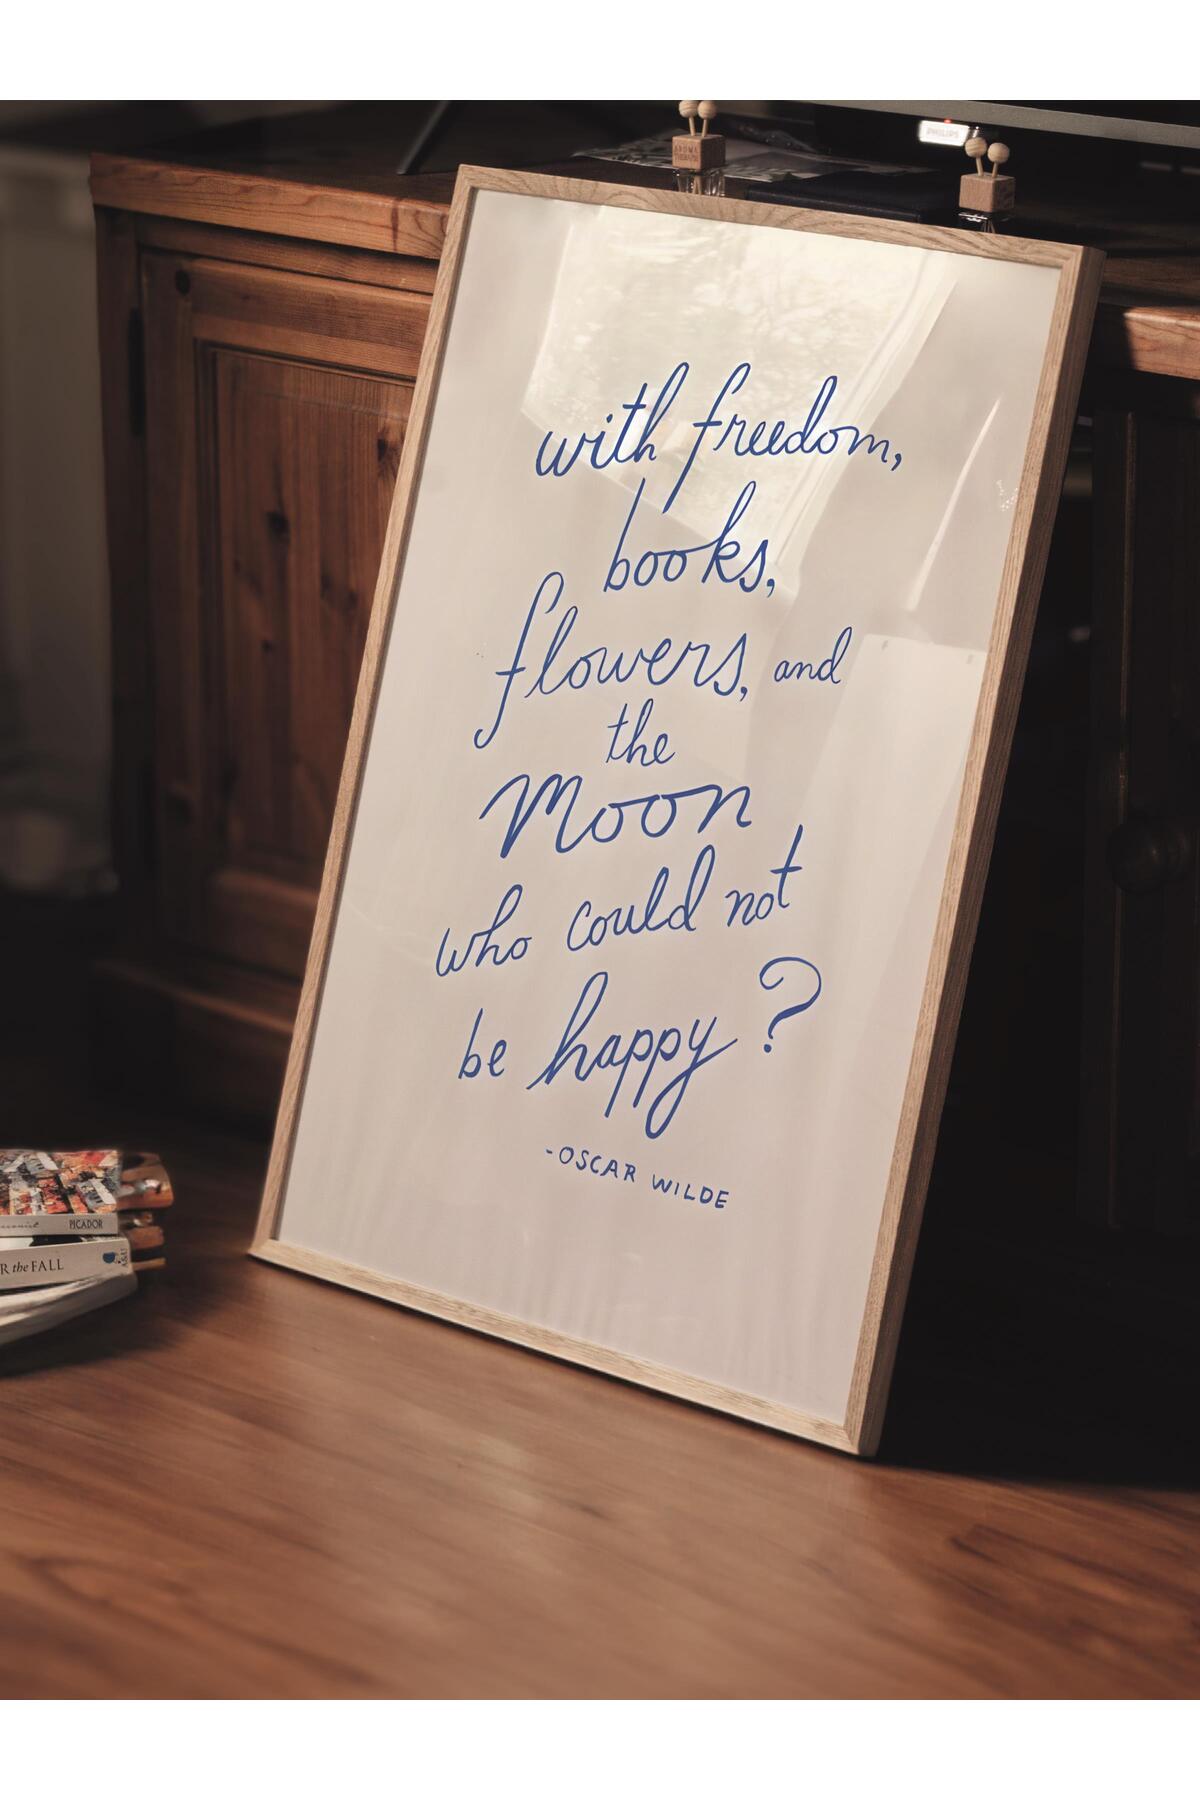 PHILIPS
AROMA
THERAPIE
with freedom,
books,
flowers, and
the
Moon
who could not
be happy?
-OSCAR WILDE
PICADOR
R the FALL